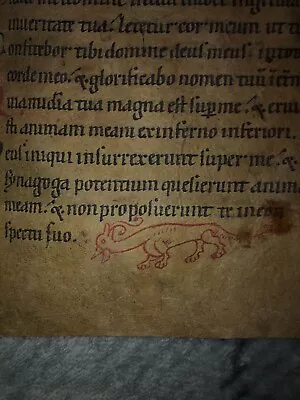 in ueritate tua. Letetur cor meum ut ti
Confitebor tibi domine deus meus. intoto
corde meo. & glorificabo nomen tuū
misericordia tua magna est sup me. & erui
sti animam meam ex inferno inferiori.
Deus iniqui insurrexerunt super me. &
synagoga potentium quesierunt anim
meam. & non proposuerunt te incon
spectu suo.